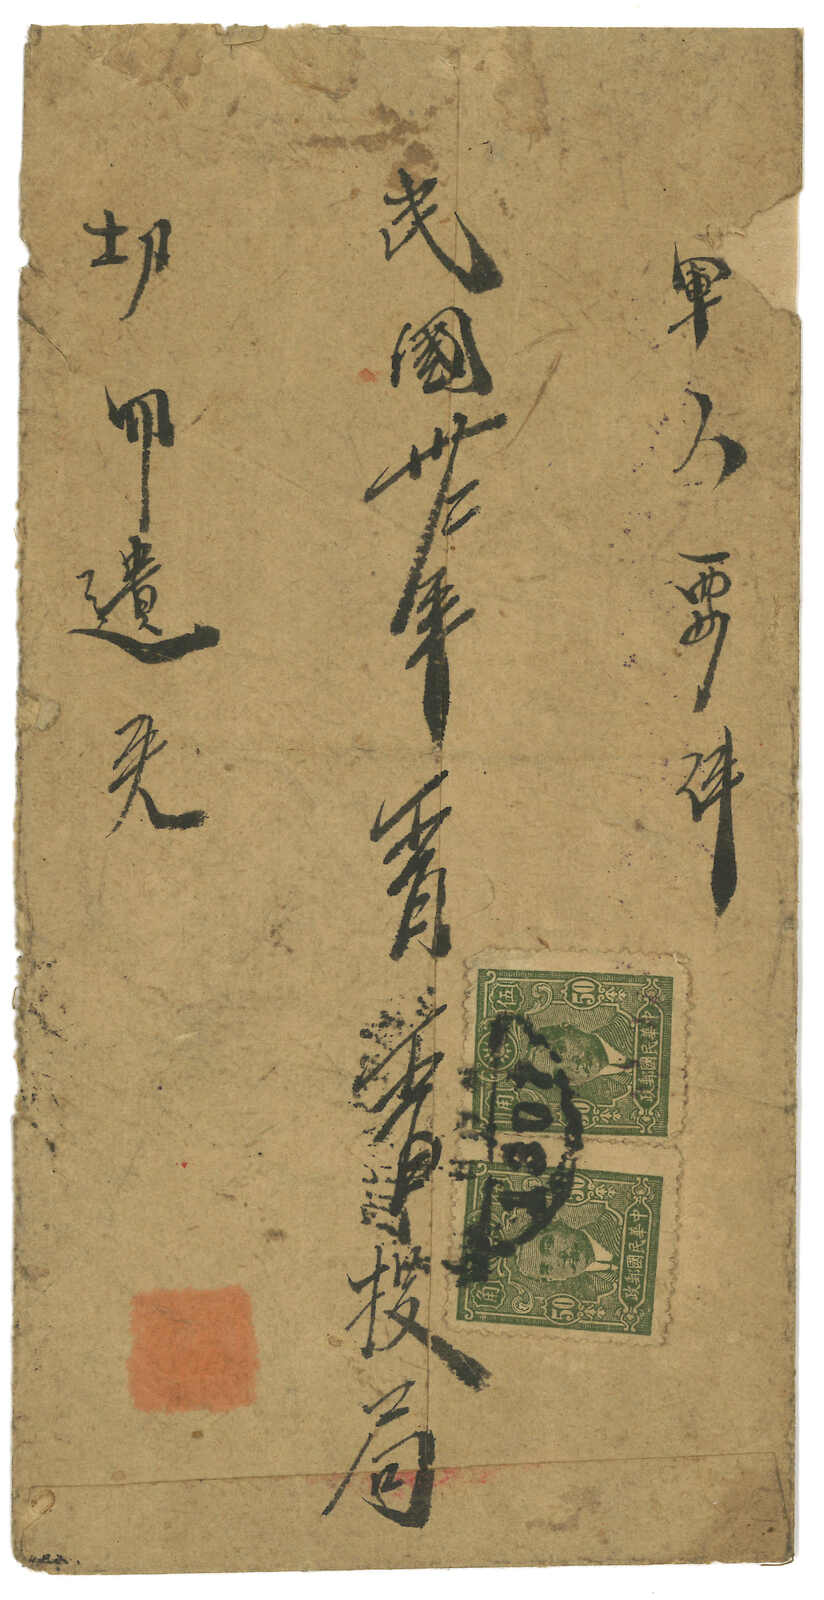 軍人要件
民國卅二年 月 日投局
切毋遺失
中華民國郵政
50
伍角
1307
中華民國郵政
50
角